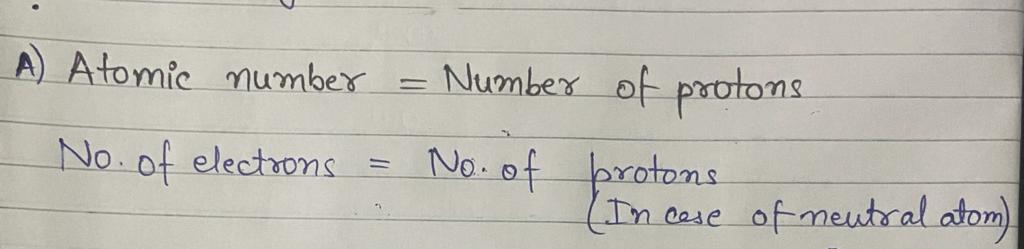 A) Atomic number = Number of protons
No. of electrons = No. of protons
(In case of neutral atom)